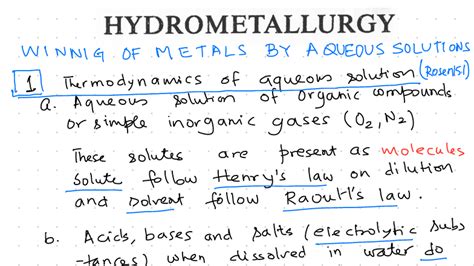 HYDROMETALLURGY
WINNIG OF METALS BY AQUEOUS SOLUTIONS
1 Thermodynamics of aqueous solution (Rosenqist)
a. Aqueous solution of organic compounds
or simple inorganic gases (O2, N2)
These solutes are present as molecules
Solute follow Henry's law on dilution
and Solvent follow Raoult's law.
b. Acids, bases and salts (electrolytic subs
-tances) when dissolved in water do